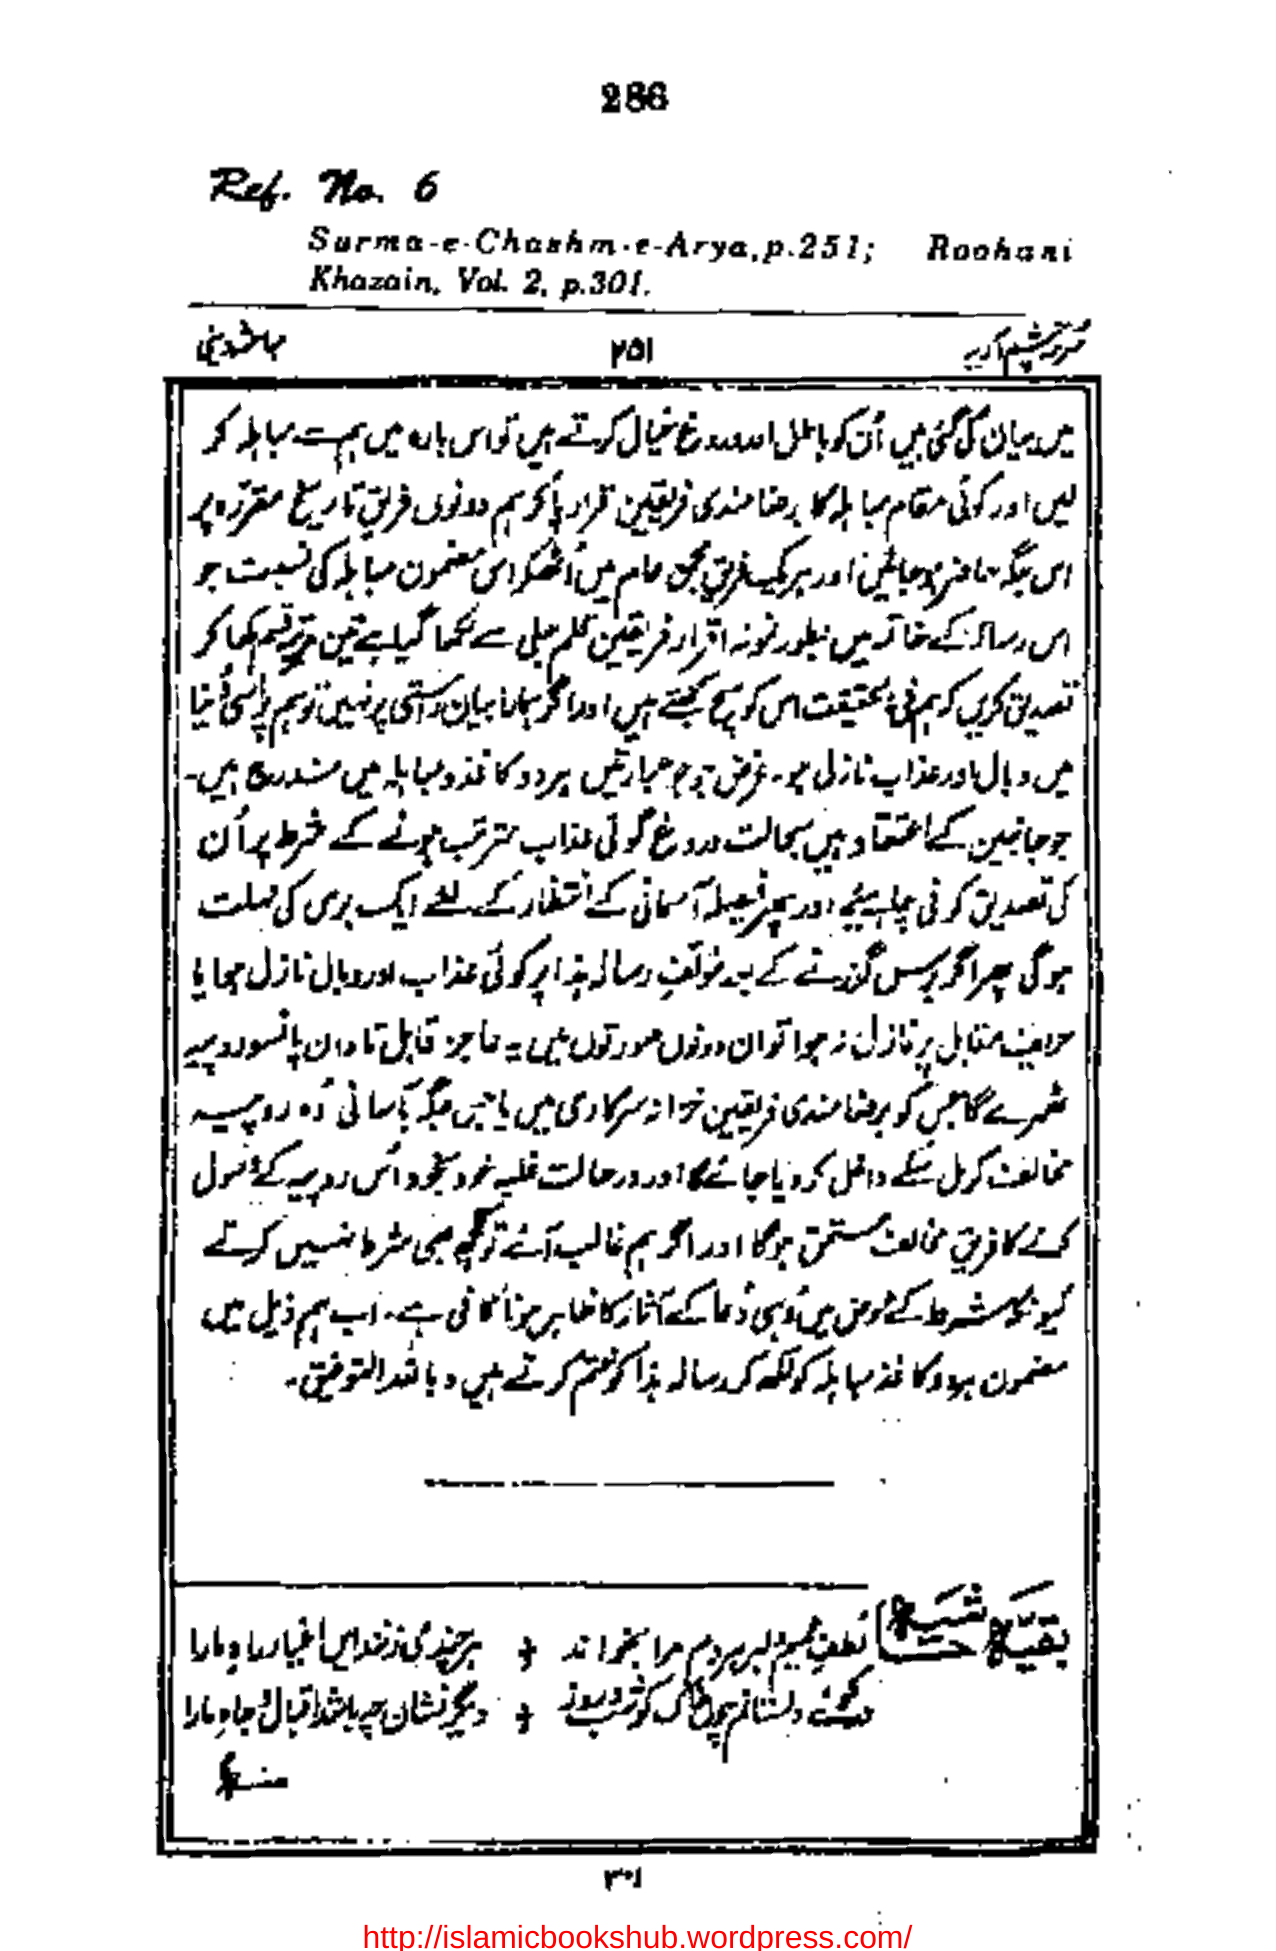 286
Ref. No. 6
Surma-e-Chashm-e-Arya, p.251; Roohani
Khazain, Vol. 2, p.301.
سرمہ چشم آریہ ۲۵۱
میں بیان کی گئی ہیں اُن کو باطل اور دروغ خیال کرتے ہیں تو اس بارہ میں ہم سے مباہلہ کر
لیں اور کوئی مقام مباہلہ کا برضامندی فریقین قرار پا کر ہم دونوں فریق تاریخ مقررہ پر
اس جگہ حاضر ہو جائیں اور ہر یک فریق مجمع عام میں اُٹھ کر اس مضمون مباہلہ کی نسبت جو
اس رسالہ کے خاتمہ میں بطور نمونہ اقرار فریقین قلم جلی سے لکھا گیا ہے تین مرتبہ قسم کھا کر
تصدیق کریں کہ ہم فی الحقیقت اس کو سچ سمجھتے ہیں اور اگر ہمارا بیان راستی پر نہیں تو ہم پر اسی دُنیا
میں وبال اور عذاب نازل ہو۔ غرض جو جو عبارتیں ہر دو کاغذ مباہلہ میں مندرج ہیں۔
جو جانبین کے اعتقاد ہیں بحالت دروغ گوئی عذاب مترتب ہونے کے شرط پر اُن
کی تصدیق کرنی چاہیئے اور پھر فیصلہ آسمانی کے انتظار کے لئے ایک برس کی مہلت
ہوگی پھر اگر برس گزرنے کے بعد مؤلف رسالہ ہذا پر کوئی عذاب اور وبال نازل ہوا یا
حریف مقابل پر نازل نہ ہوا تو ان دونوں صورتوں میں یہ عاجز قابل تاوان پانسو روپیہ
ٹھہرے گا جس کو برضامندی فریقین خزانہ سرکاری میں یا جس جگہ بآسانی وہ روپیہ
مخالف کو مل سکے داخل کر دیا جائے گا اور درحالت غلبہ خود بخود اُس روپیہ کے وصول
کرنے کا فریق مخالف مستحق ہوگا اور اگر ہم غالب آئے تو کچھ بھی شرط نہیں کرتے
کیونکہ شرط کے عوض میں وہی دُعا کے آثار کا ظاہر ہونا کافی ہے۔ اب ہم ذیل میں
مضمون ہر دو کاغذ مباہلہ کو لکھ کر رسالہ ہذا کو ختم کرتے ہیں وباللہ التوفیق۔
بقیہ حاشیہ
لطف عمیم دلبر ہر دم مرا بخواند + ہر چند می زنند ایں اغیار راہ ما را
در کوئے دلستانم چوں خاک کو شب و روز + دیگر نشان چہ باشد اقبال و جاہ ما را
منہ
۳۰۱
http://islamicbookshub.wordpress.com/